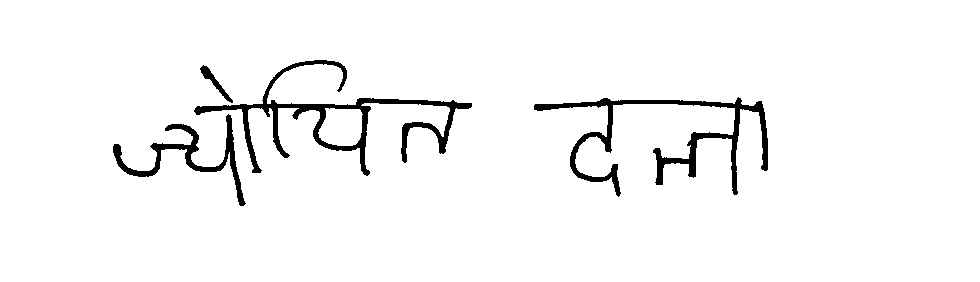 ज्योयित दत्ता